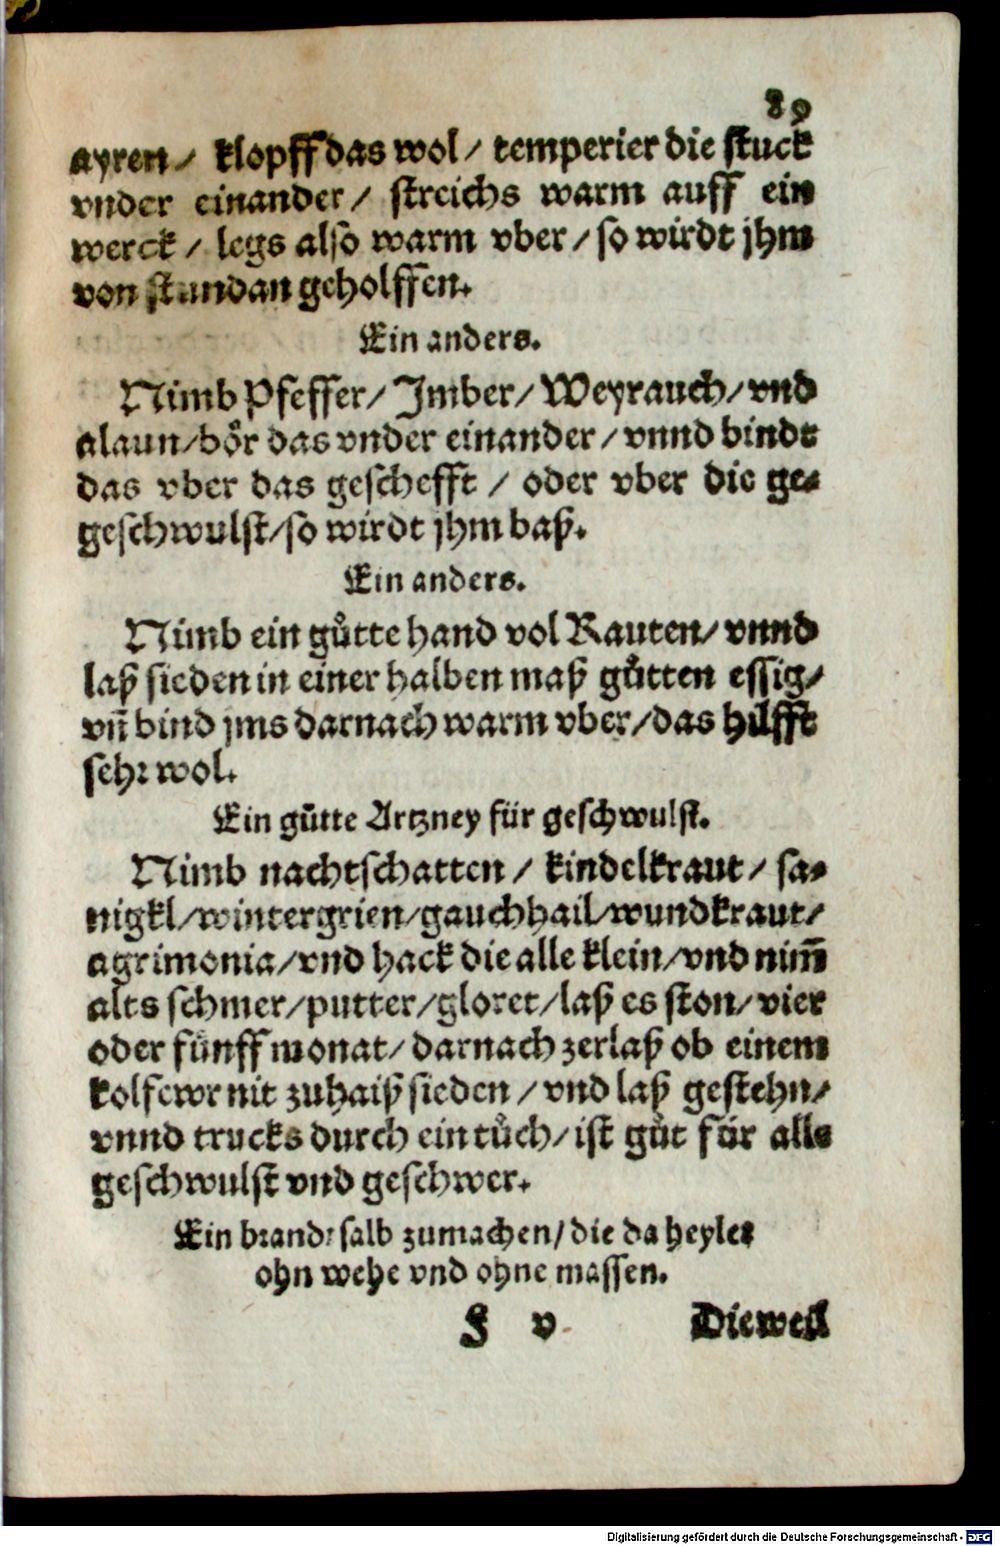 89
ayren / klopff das wol / temperier die stuck
vnder einander / streichs warm auff ein
werck / legs also warm vber / so wirdt jhm
von stundan geholffen.
Ein anders.
Nimb Pfeffer / Jmber / Weyrauch / vnd
alaun / bôr das vnder einander / vnnd bindt
das vber das geschefft / oder vber die ge-
geschwulst / so wirdt jhm baß.
Ein anders.
Nimb ein gůtte hand vol Rauten / vnnd
laß sieden in einer halben maß gůtten essig /
vñ bind jms darnach warm vber / das hilfft
sehr wol.
Ein gůtte Artzney für geschwulst.
Nimb nachtschatten / kindelkraut / sa-
nigkl / wintergrien / gauchhail / wundkraut /
agrimonia / vnd hack die alle klein / vnd nim̃
alts schmer / putter / gloret / laß es ston / vier
oder fünff monat / darnach zerlaß ob einem
kolfewr nit zuhaiß sieden / vnd laß gestehn /
vnnd trucks durch ein tůch / ist gůt für alle
geschwulst vnd geschwer.
Ein brandsalb zumachen / die da heylet
ohn wehe vnd ohne massen.
F v Dieweil
Digitalisierung gefördert durch die Deutsche Forschungsgemeinschaft - DFG